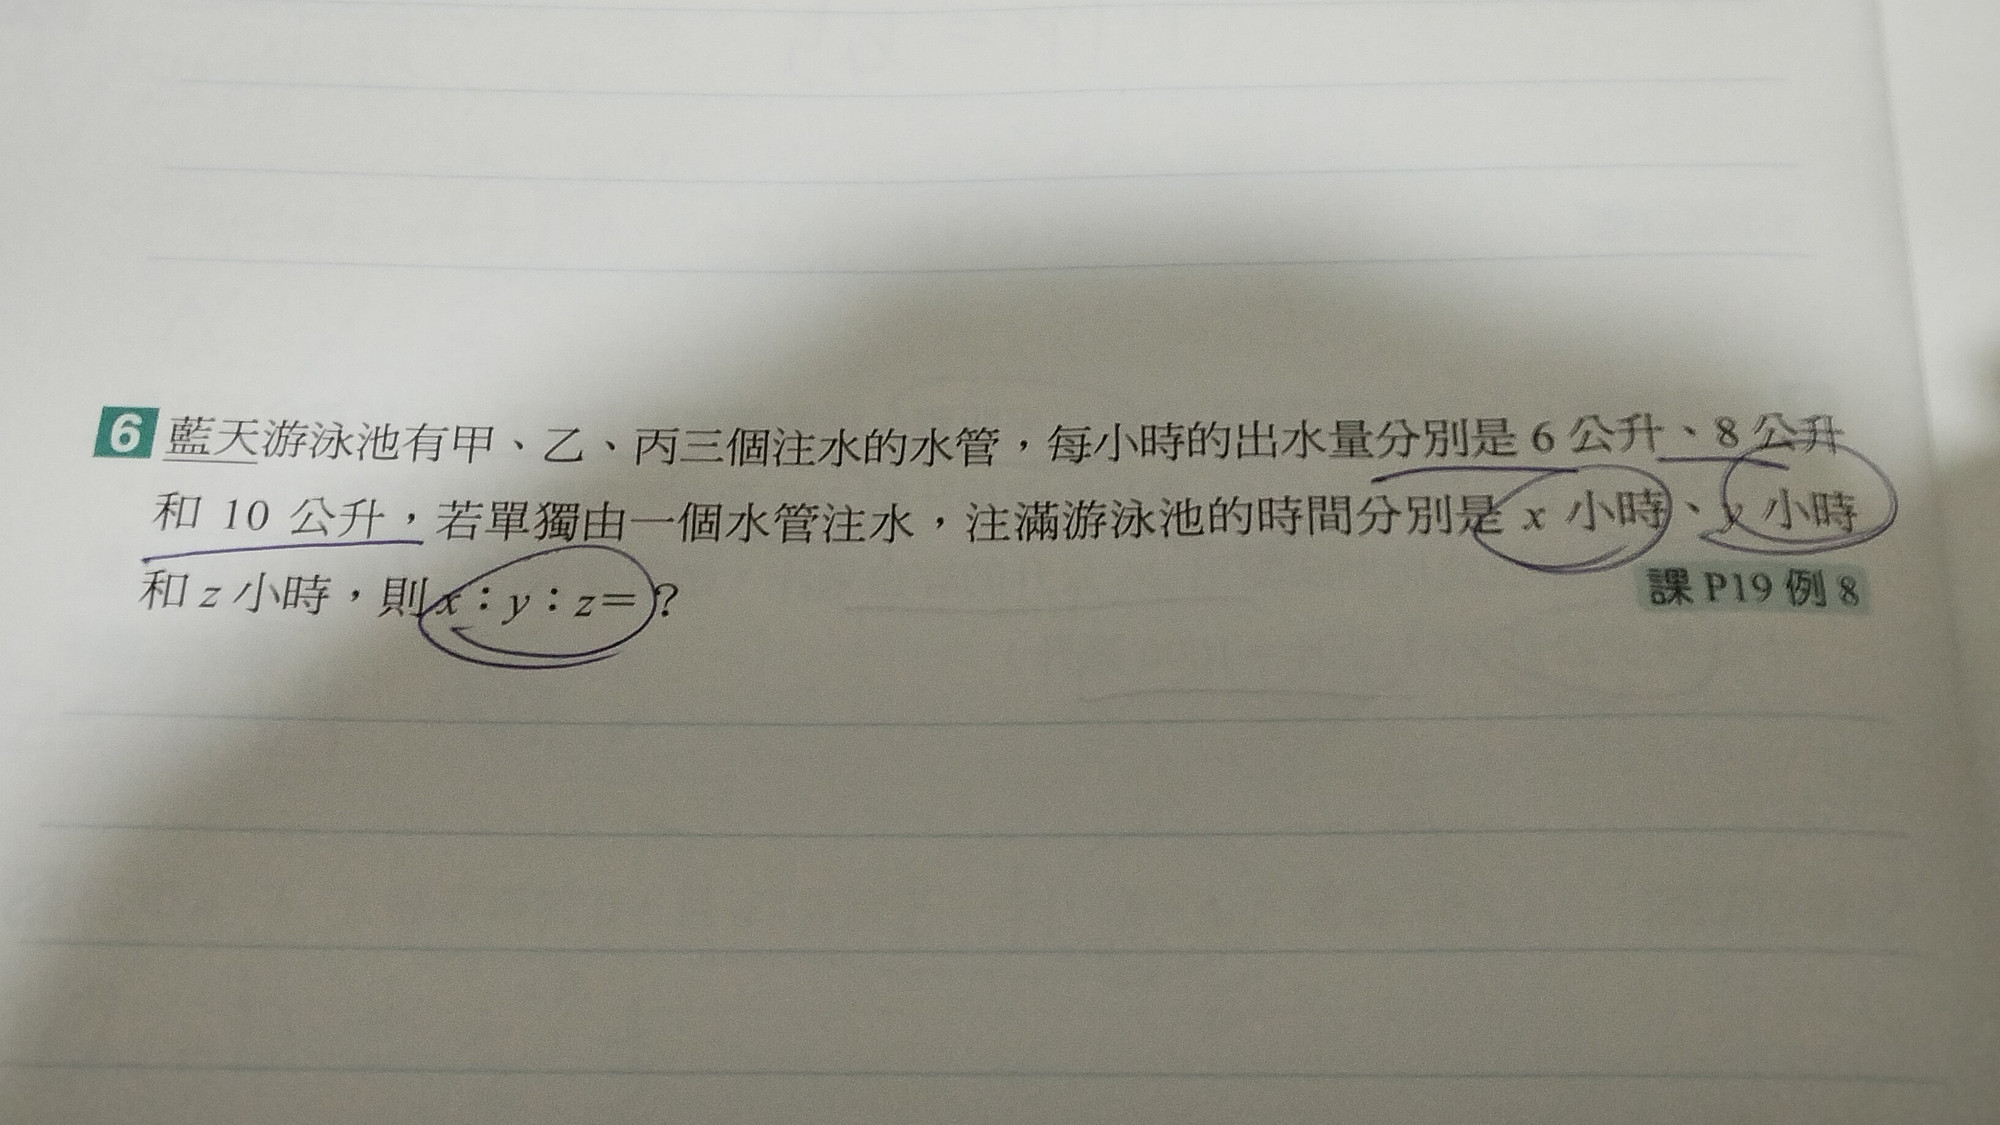 6 藍天游泳池有甲、乙、丙三個注水的水管，每小時的出水量分別是 6 公升、8 公升
和 10 公升，若單獨由一個水管注水，注滿游泳池的時間分別是 x 小時、y 小時
和 z 小時，則 x：y：z＝？
課 P19 例 8